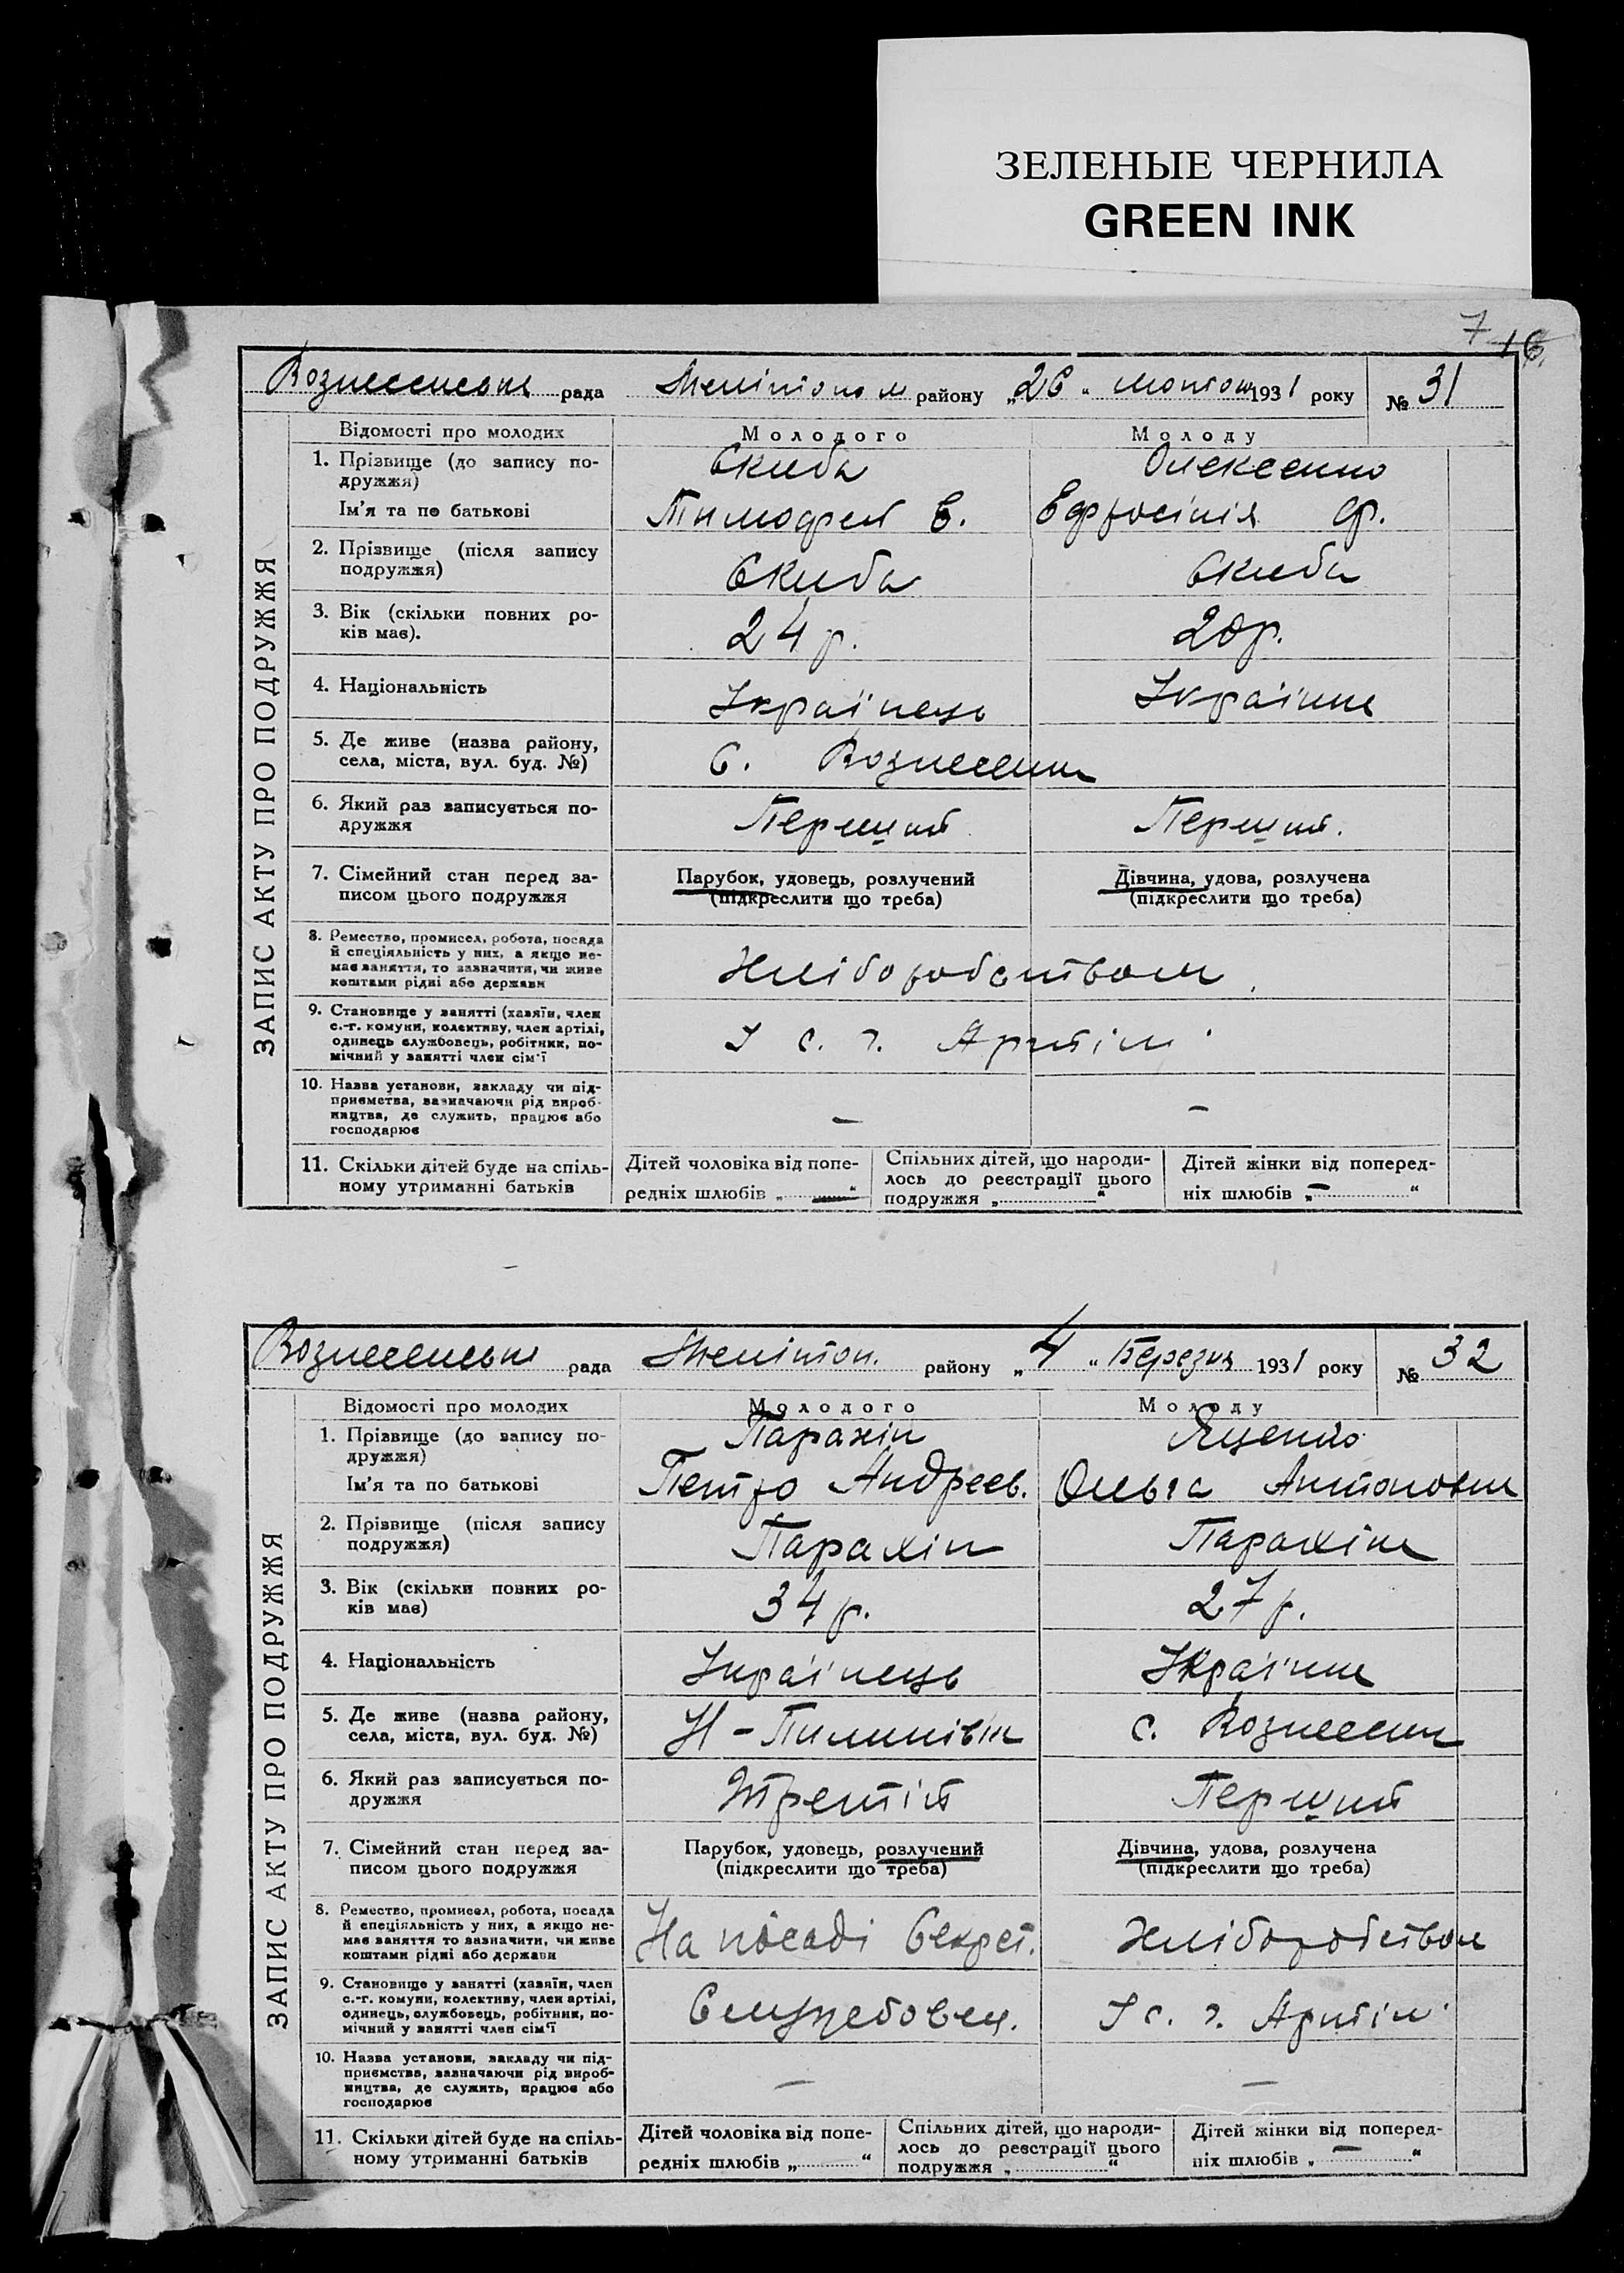 ЗЕЛЕНЫЕ ЧЕРНИЛА
GREEN INK
7 16
Вознесенська рада Мелітопол району „26 “ лютого 1931 року № 31
ЗАПИС АКТУ ПРО ПОДРУЖЖЯ
Відомості про молодих Молодого Молоду
1. Прізвище (до запису по-
дружжя) Скиба Олексенко
Ім'я та по батькові Тимофей Є. Ефросінія Ф.
2. Прізвище (після запису
подружжя) Скиба Скиба
3. Вік (скільки повних ро-
ків має). 24 р. 20р.
4. Національність Українець Українка
5. Де живе (назва району,
села, міста, вул. буд. №) С. Вознесенка
6. Який раз записується по-
дружжя Перший Перший.
7. Сімейний стан перед за- Парубок, удовець, розлучений Дівчина, удова, розлучена
писом цього подружжя (підкреслити що треба) (підкреслити що треба)
8. Ремество, промисел, робота, посада
й спеціяльність у них, а якщо не-
має заняття, то зазначити, чи живе
коштами рідні або держави Хліборобством
9. Становище у занятті (хазяїн, член
с.-г. комуни, колективу, член артілі,
одинець службовець, робітник, по-
мічний у занятті член сім'ї У с. г. Артілі
10. Назва установи, закладу чи під-
приємства, зазначаючи рід вироб-
ництва, де служить, працює або
господарює — —
11. Скільки дітей буде на спіль-
ному утриманні батьків
Дітей чоловіка від попе-
редніх шлюбів „ — “
Спільних дітей, що народи-
лось до реєстрації цього
подружжя „ “
Дітей жінки від поперед-
ніх шлюбів „ — “
Вознесенська рада Мелітоп. району „ 4 “ Березня 1931 року № 32
ЗАПИС АКТУ ПРО ПОДРУЖЖЯ
Відомості про молодих Молодого Молоду
1. Прізвище (до запису по-
дружжя) Парахін Яценко
Ім'я та по батькові Петро Андреєв. Ольга Антоновна
2. Прізвище (після запису
подружжя) Парахін Парахіна
3. Вік (скільки повних ро-
ків має) 34 р. 27 р.
4. Національність Українець Українка
5. Де живе (назва району,
села, міста, вул. буд. №) с. Вознесенка
6. Який раз записується по-
дружжя Третій Перший
7. Сімейний стан перед за- Парубок, удовець, розлучений Дівчина, удова, розлучена
писом цього подружжя (підкреслити що треба) (підкреслити що треба)
8. Ремество, промисел, робота, посада
й спеціяльність у них, а якщо не-
має заняття то зазначити, чи живе
коштами рідні або держави На посаді Секрет. Хліборобством
9. Становище у занятті (хазяїн, член
с.-г. комуни, колективу, член артілі,
одинець, службовець, робітник, по-
мічний у занятті член сім'ї Службовец. У с. г. Артілі
10. Назва установи, закладу чи під-
приємства, зазначаючи рід вироб-
ництва, де служить, працює або
господарює — —
11. Скільки дітей буде на спіль-
ному утриманні батьків
Дітей чоловіка від попе-
редніх шлюбів „ “
Спільних дітей, що народи-
лось до реєстрації цього
подружжя „ “
Дітей жінки від поперед-
ніх шлюбів „ — “